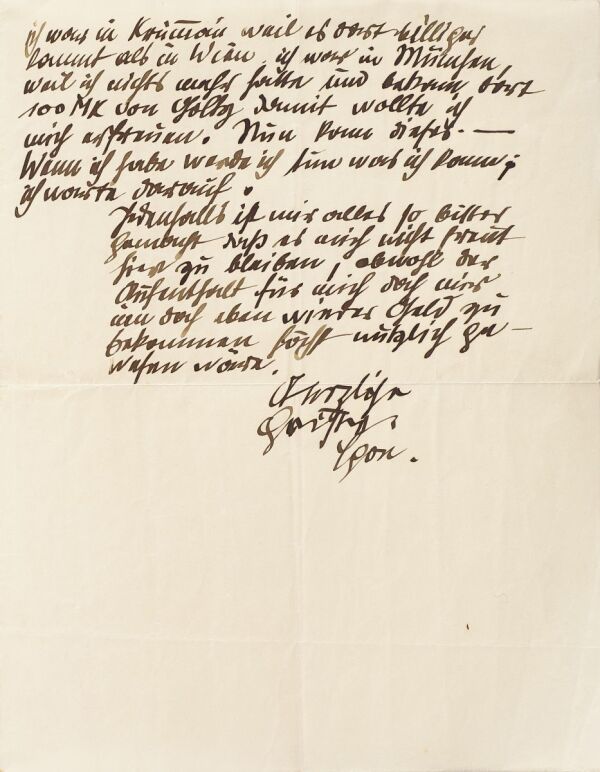 ich war in Krummau weil es dort billiger
kommt als in Wien, ich war in München,
weil ich nichts mehr hatte und bekam dort
100 MK von Goltz damit wollte ich
mich erfreuen. Nun kam dieses. —
Wenn ich habe werde ich tun was ich kann;
ich warte darauf.
Jedenfalls ist mir alles so bitter
gemacht daß es mich nicht freut
hier zu bleiben, obwohl der
Aufenthalt für mich doch
um doch eben wieder Geld zu
bekommen höchst nützlich ge-
wesen wäre.
Herzliche
Grüße,
Egon.